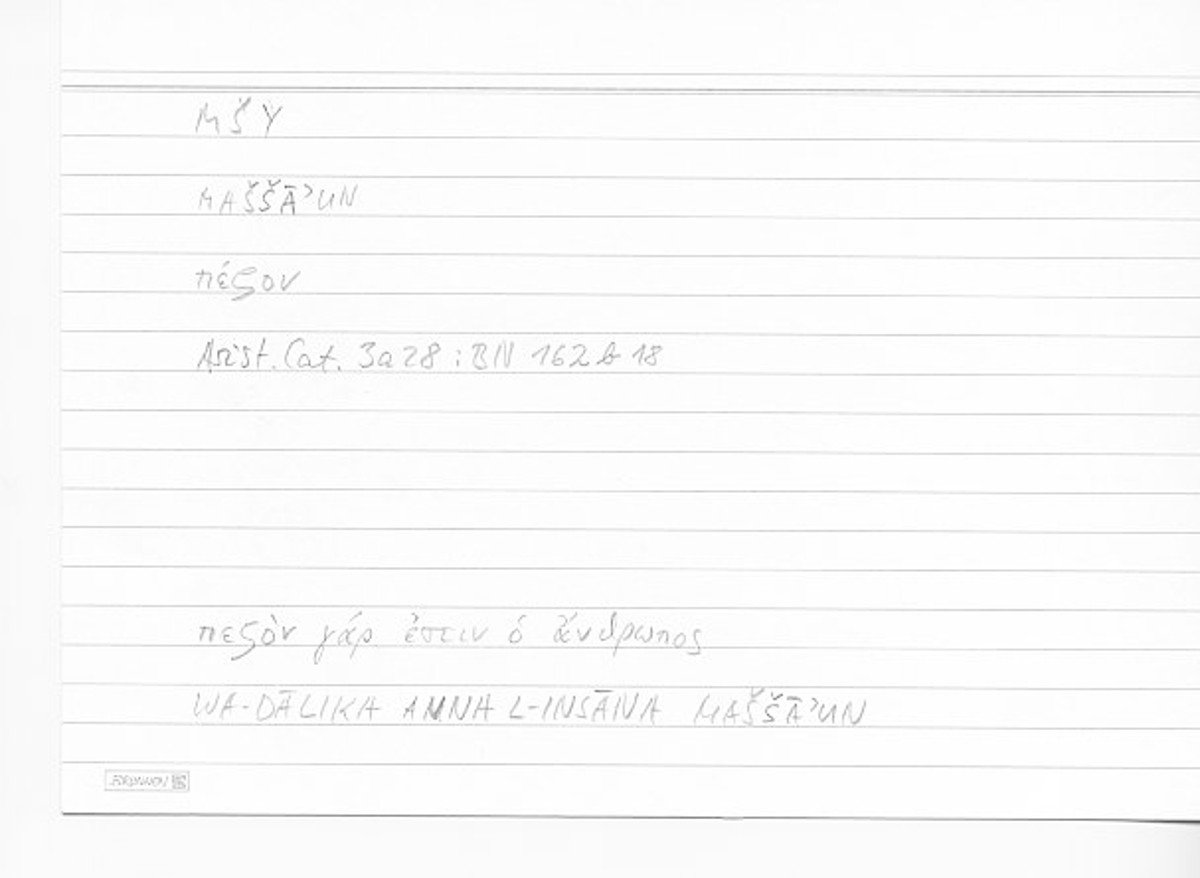 MŠY
MAŠŠĀʾUN
πέζον
Arist. Cat. 3a28 : BN 162 b 18
πεζὸν γάρ ἐστιν ὁ ἄνθρωπος
WA-DĀLIKA ANNA L-INSĀNA MAŠŠĀʾUN
BRUNNEN